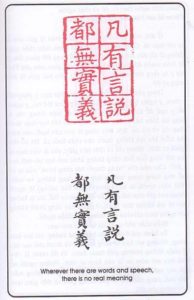 凡有言説
都無實義
凡有言説
都無實義
Wherever there are words and speech,
there is no real meaning